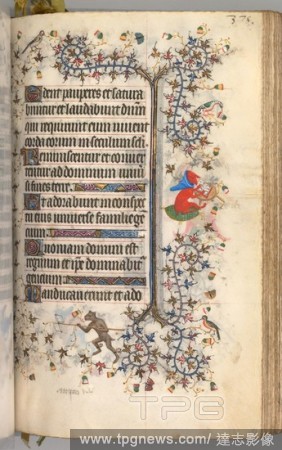 375.
Edent pauperes et satura
buntur et laudabunt dnm̄
qui requirunt eum vivent
corda eorum in seculum scli
Reminiscentur et conver
tentur ad dominum univ̄si
fines terre.
Et adorabunt in conspec
tu eius universe familie gen
cium.
Quoniam domini est
regnum et ip̄e dominabit̄
gencium.
Manducaverunt et ado
TPG
www.tpgnews.com/達志影像